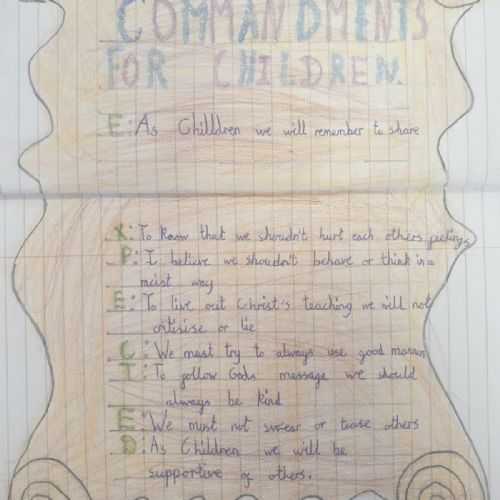 COMMANDMENTS
FOR CHILDREN.
E: As Chilldren we will remember to share
X: To know that we shouldn't hurt each others feelings
P: I believe we shouldn't behave or think in a
racist way
E: To live out Christ's teaching we will not
critisise or lie
C: We must try to always use good manners
T: To follow Gods message we should
always be kind
E: We must not swear or tease others
D: As Children we will be
supportive of others.